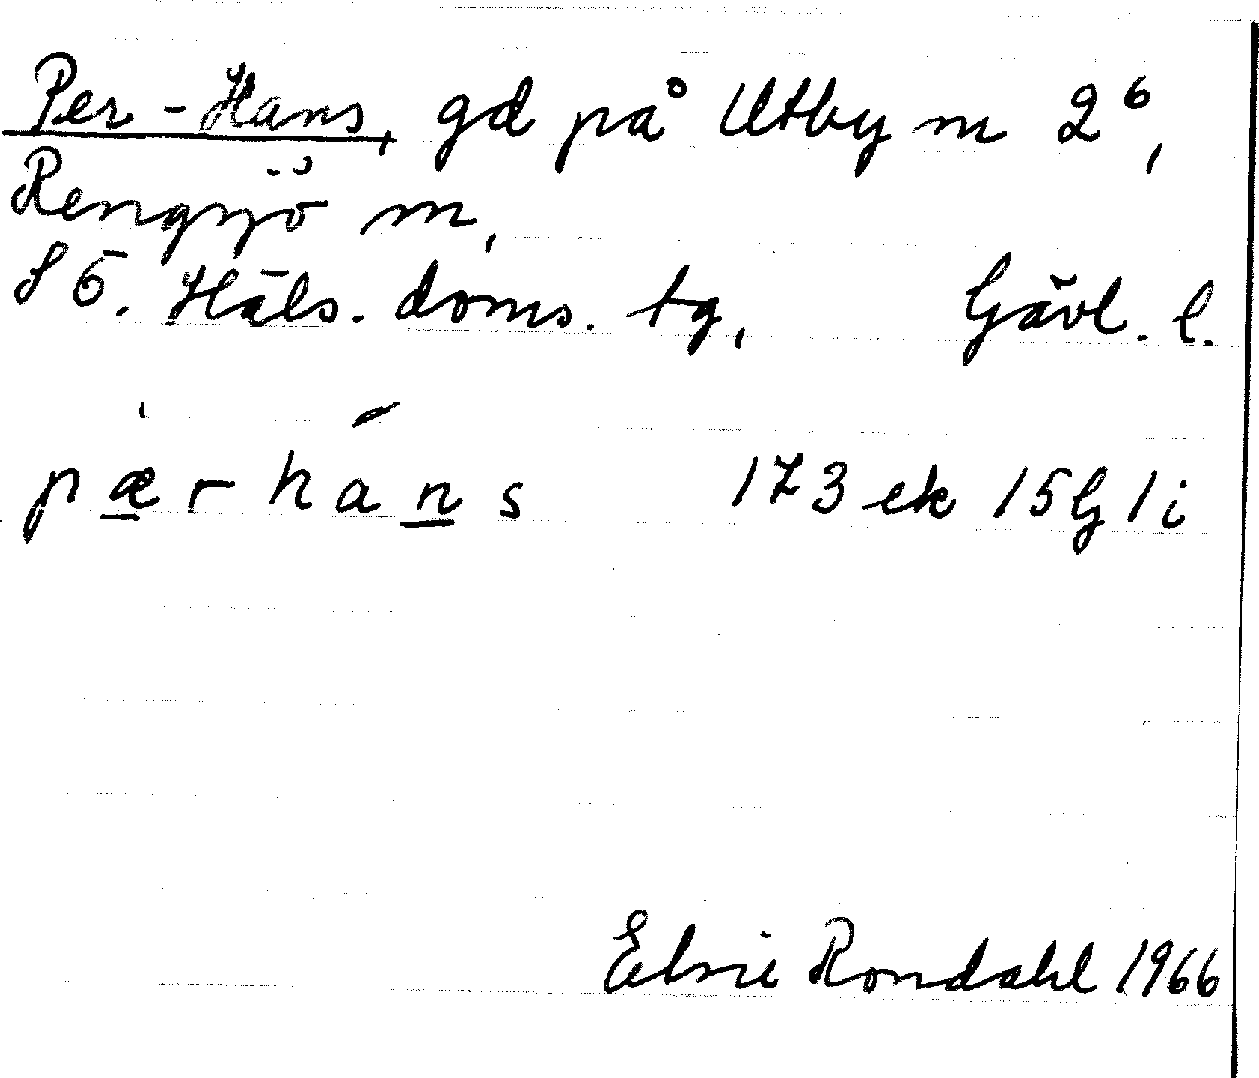 Per-Hans, gd på Utby m 2⁶,
Rengsjö m,
S ö. Häls. doms. tg, Gävl. l.
pærháns 173 ek 15 G 1 i
Elsie Rondahl 1966